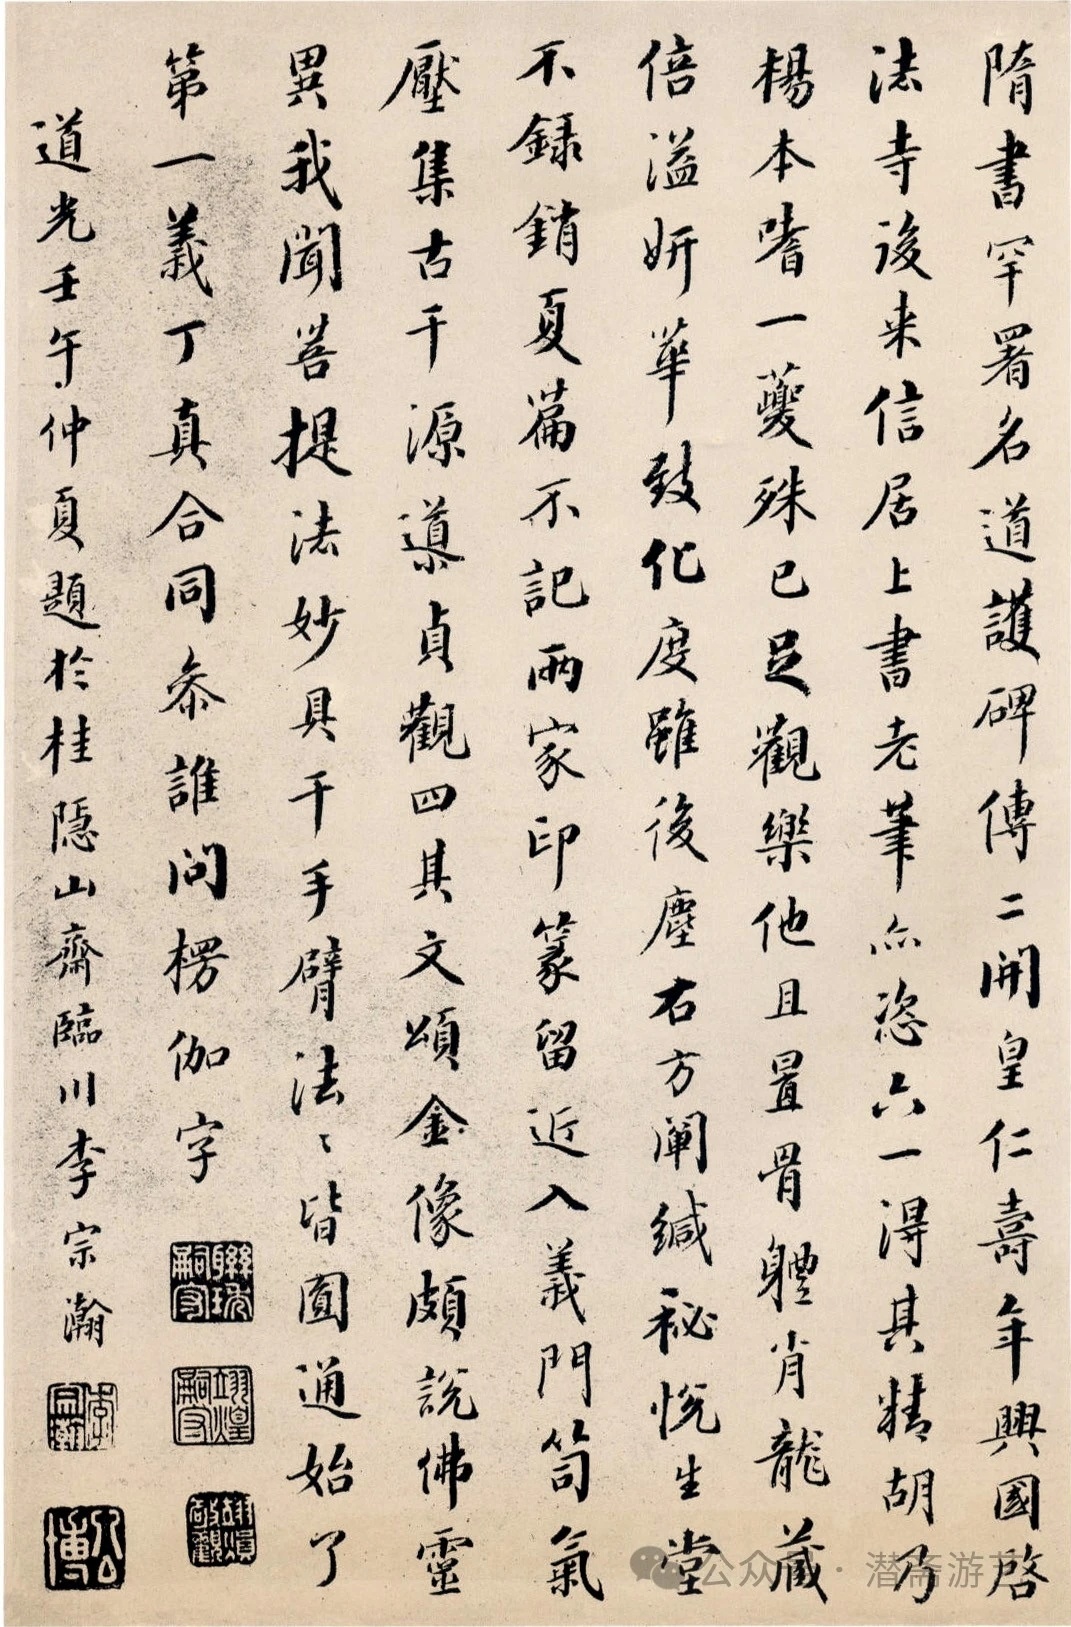 隋書罕署名道護碑傳二開皇仁壽年興國啓
法寺後来信居上書老筆亦恣六一得其精胡乃
楊本嗜一夔殊已足觀樂他且置骨體肖龍藏
倍溢妍華致化度雖後塵右方闡緘秘悅生堂
不錄銷夏篇不記兩家印篆留近入義門笥氣
壓集古千源導貞觀四其文頌金像頗說佛靈
異我聞菩提法妙具千手臂法〻皆圓通始了
第一義丁真合同参誰問楞伽字
道光壬午仲夏題於桂隱山齋臨川李宗瀚
李宗瀚
公博
公众号·潜斋游艺